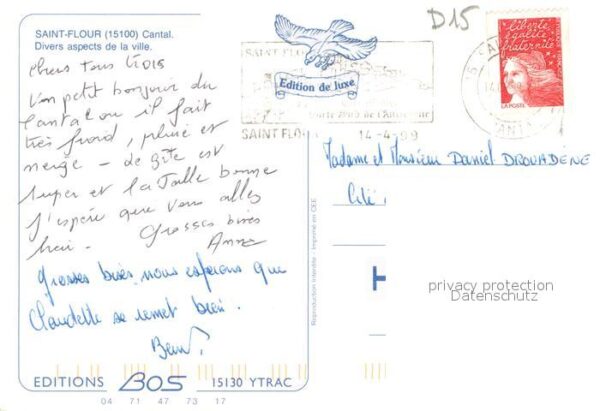 SAINT-FLOUR (15100) Cantal.
Divers aspects de la ville.
D15
Edition de luxe
SAINT-FLOUR
14-4-99
liberté
égalité
fraternité
LA POSTE
chers tous trois
Un petit bonjour du
Cantal ou il fait
très froid, pluie et
neige - le gîte est
super et la Table bonne
J'espère que vous allez
bien. Grosses bises
Anne
Grosses bises, nous espérons que
Claudette se remet bien.
Madame et Monsieur Daniel DROUADÈNE
Cité
Reproduction interdite - Imprimé en CEE
H
privacy protection
Datenschutz
EDITIONS BOS 15130 YTRAC
04 71 47 73 17